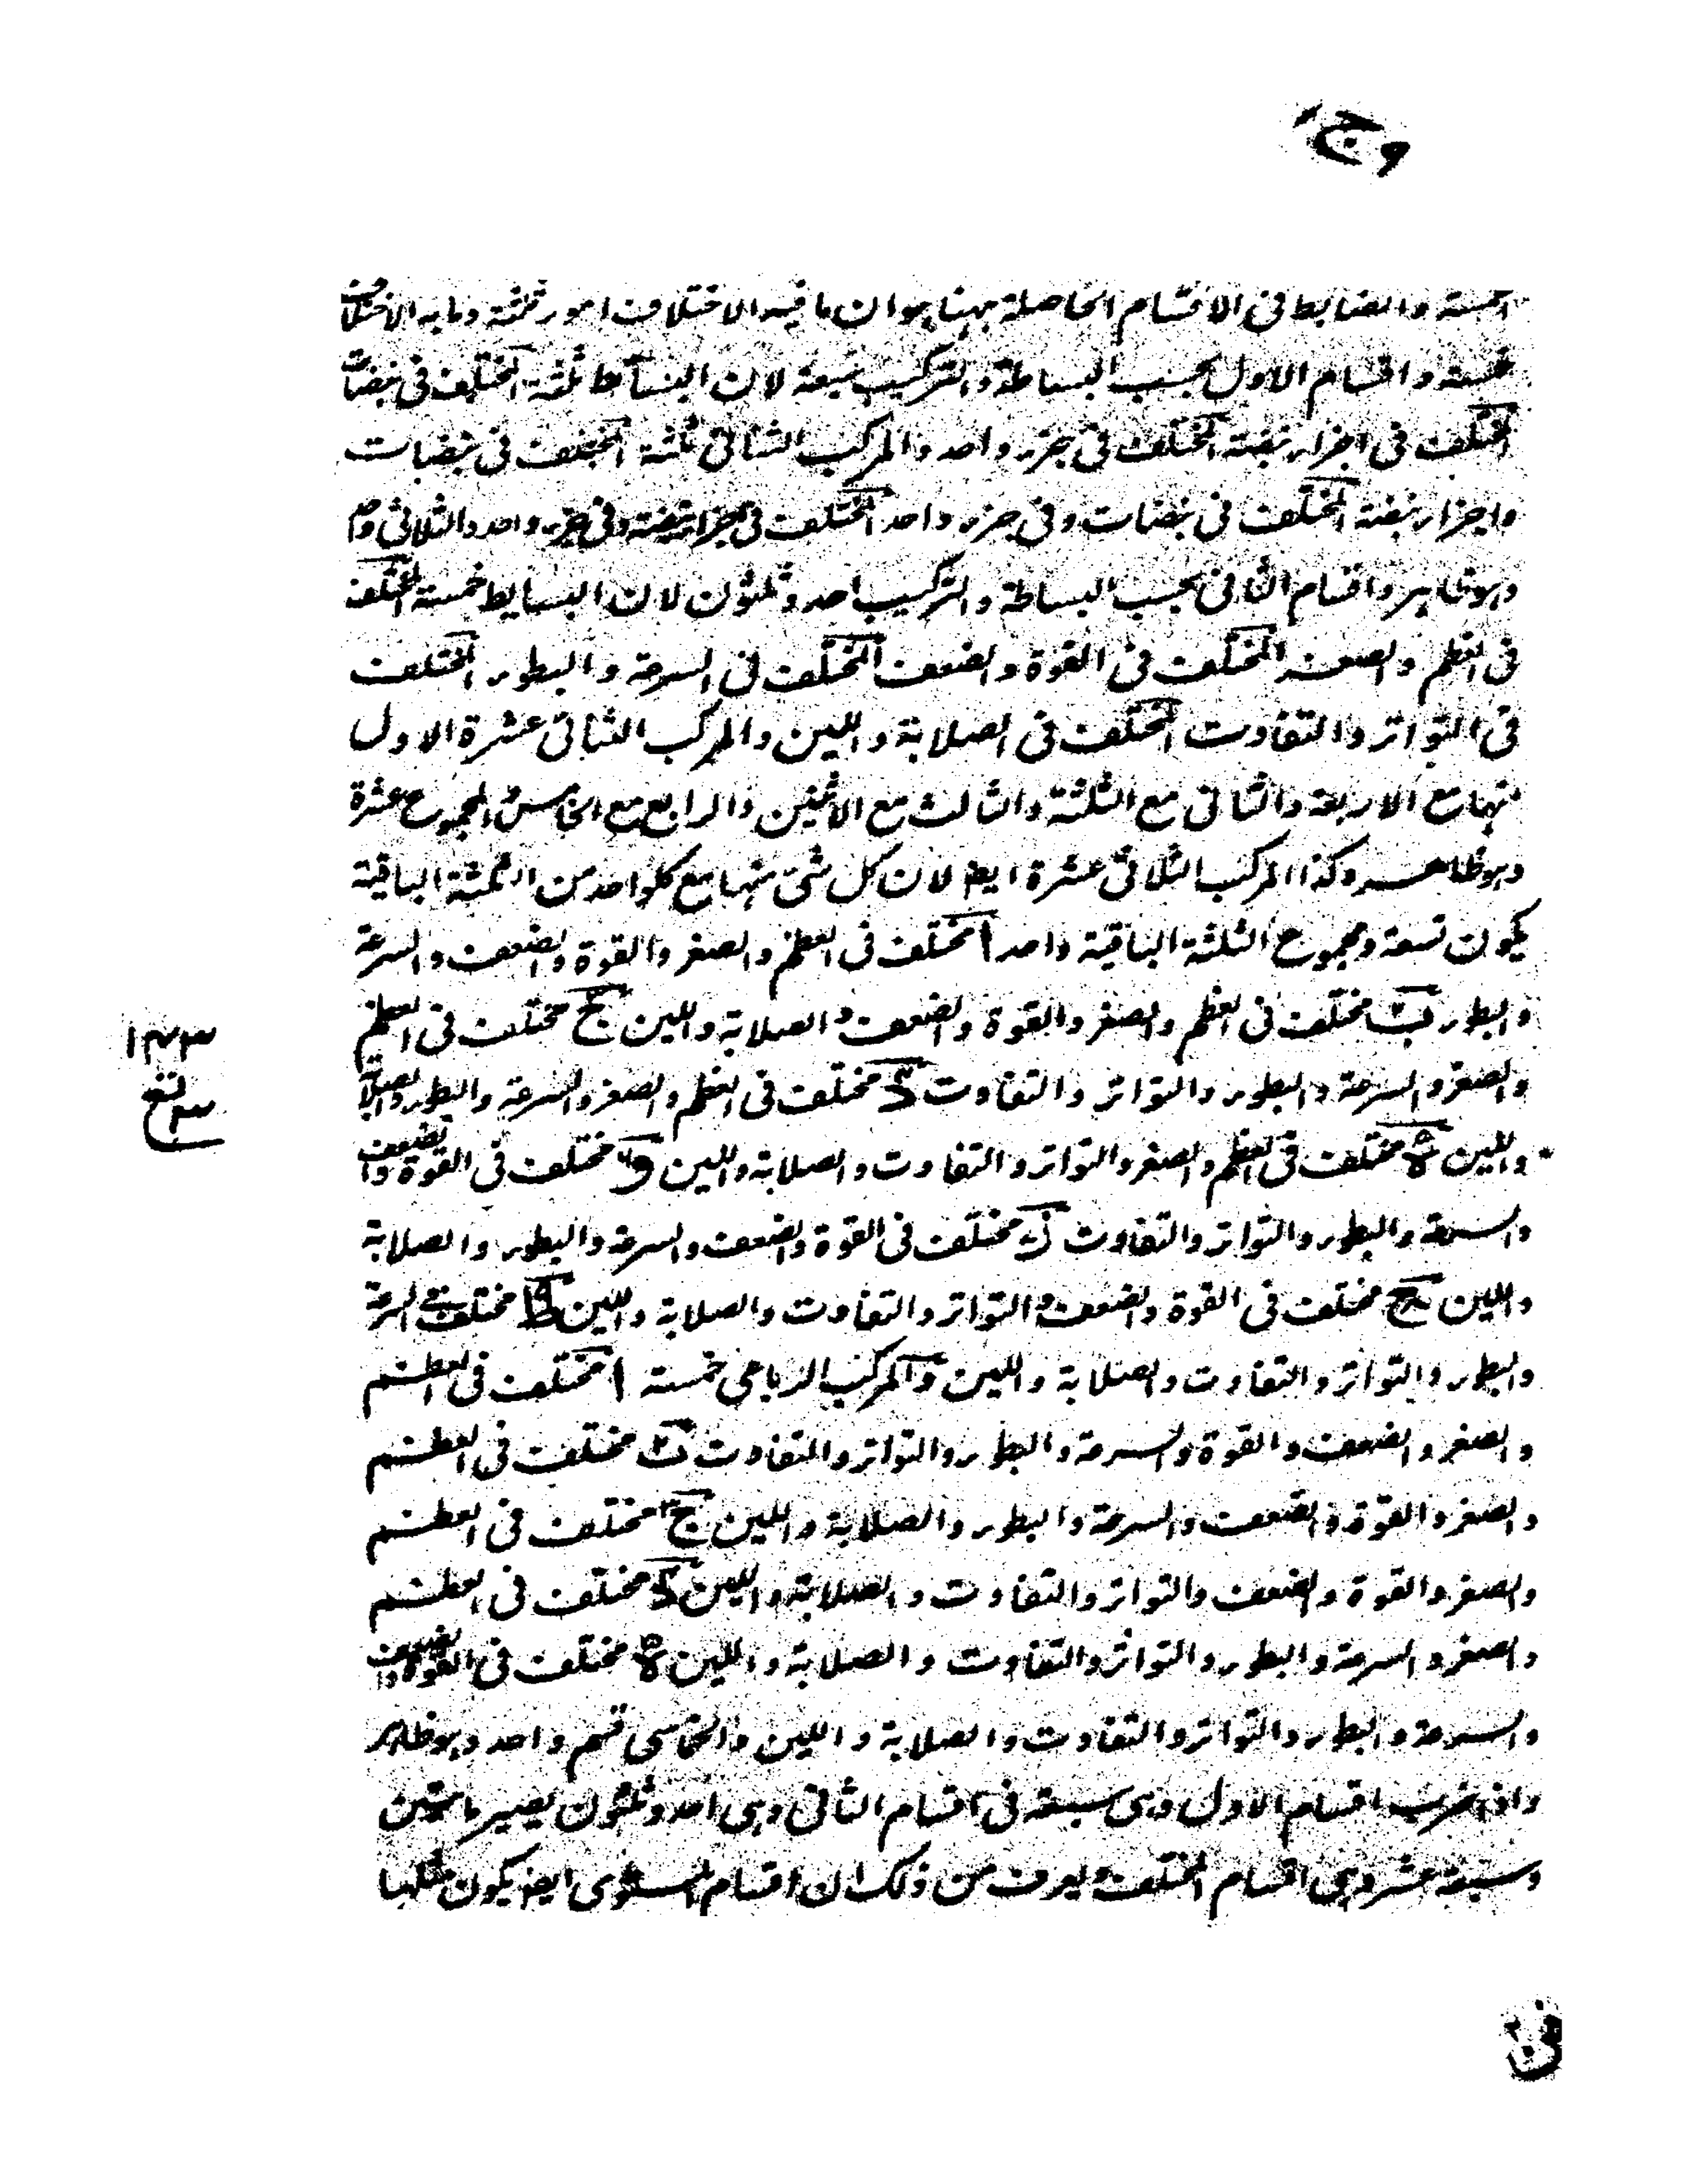 وج
الخمسة والضابط فى الاقسام الحاصلة ههنا هو ان ما فيه الاختلاف امور ثلثة وما به الاختلاف
خمسة واقسام الاول بحسب البساطة والتركيب سبعة لان البسائط ثلثة المختلف فى نبضات
المختلف فى اجزاء نبضة المختلف فى جزء واحد والمركب الثنائى ثلثة المختلف فى نبضات
واجزاء نبضة المختلف فى نبضات وفى جزء واحد المختلف فى اجزاء نبضة وفى جزء واحد والثلاثى واحد
وهو ظاهر واقسام الثانى بحسب البساطة والتركيب احد وثلثون لان البسايط خمسة المختلف
فى العظم والصغر المختلف فى القوة والضعف المختلف فى السرعة والبطور المختلف
فى التواتر والتفاوت المختلف فى الصلابة واللين والمركب الثنائى عشرة الاول
منها مع الاربعة والثانى مع الثلثة والثالث مع الاثنين والرابع مع الخامس المجموع عشرة
وهو ظاهر وكذا المركب الثلاثى عشرة ايضا لان كل شئ منها مع كل واحد من الثلثة الباقية
يكون تسعة ومجموع الثلثة الباقية واحد ا مختلف فى العظم والصغر والقوة والضعف والسرعة
والبطور ب مختلف فى العظم والصغر والقوة والضعف والصلابة واللين ج مختلف فى العظم
والصغر والسرعة والبطور والتواتر والتفاوت د مختلف فى العظم والصغر والسرعة والبطور والصلابة
واللين ه مختلف فى العظم والصغر والتواتر والتفاوت والصلابة واللين و مختلف فى القوة والضعف
والسرعة والبطور والتواتر والتفاوت ز مختلف فى القوة والضعف والسرعة والبطور والصلابة
واللين ح مختلف فى القوة والضعف والتواتر والتفاوت والصلابة واللين ط مختلف فى السرعة
والبطور والتواتر والتفاوت والصلابة واللين والمركب الرباعى خمسة ا مختلف فى العظم
والصغر والضعف والقوة والسرعة والبطور والتواتر والتفاوت ب مختلف فى العظم
والصغر والقوة والضعف والسرعة والبطور والصلابة واللين ج مختلف فى العظم
والصغر والقوة والضعف والتواتر والتفاوت والصلابة واللين د مختلف فى العظم
والصغر والسرعة والبطور والتواتر والتفاوت والصلابة واللين ه مختلف فى القوة والضعف
والسرعة والبطور والتواتر والتفاوت والصلابة واللين والخماسى قسم واحد وهو ظاهر
واذا ضرب اقسام الاول وهى سبعة فى اقسام الثانى وهى احد وثلثون يصير مأتين
وسبعة عشر وهى اقسام المختلف ويعرف من ذلك ان اقسام المستوى ايضا يكون مثلها
فى